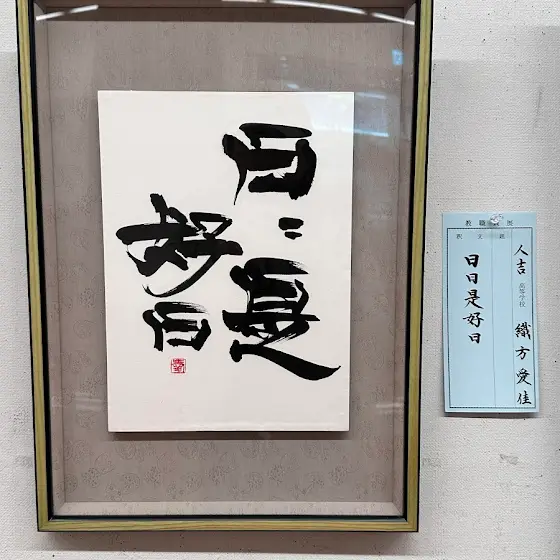 日〻是
好日
教職員展
釈文票
人吉高等学校 織方愛佳
日日是好日